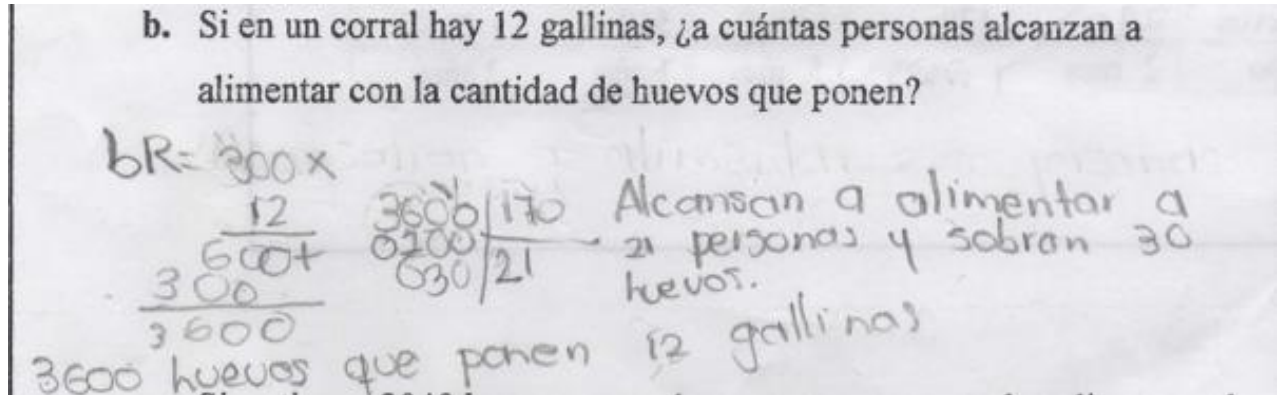 b. Si en un corral hay 12 gallinas, ¿a cuántas personas alcanzan a
alimentar con la cantidad de huevos que ponen?
bR= 300x
12
600+
300
3600
3600 170
0200 21
030
Alcansan a alimentar a
21 personas y sobran 30
huevos.
3600 huevos que ponen 12 gallinas